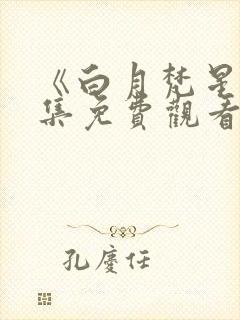 《白月梵星
集免費觀看
孔慶任